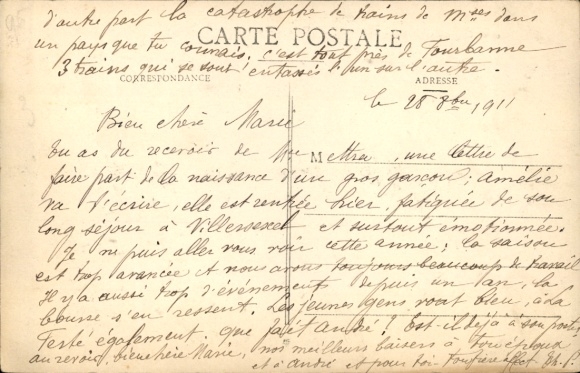 d'autre part la catastrophe de trains de Mses dans
un pays que tu connais, c'est tout près de
CARTE POSTALE
3 trains qui se sont entassés l'un sur l'autre.
CORRESPONDANCE
ADRESSE
le 28 8bre 1911
Bien chère Marie
Tu as dû recevoir de Mme Mettra, une lettre de
faire part de la naissance d'un gros garçon; Amélie
va t'écrire, elle est rentrée hier, fatiguée de son
long séjour à Villersexel et surtout émotionnée.
Je ne puis aller vous voir cette année; la saison
est trop avancée et nous avons toujours beaucoup de travail
Il y a aussi trop d'événements depuis un an, la
bourse s'en ressent. Les jeunes gens vont bien, à la
Ferté également. que fait André? Est-il déjà à son poste,
au revoir, bien chère Marie, nos meilleurs baisers à ton époux
et à André et pour toi